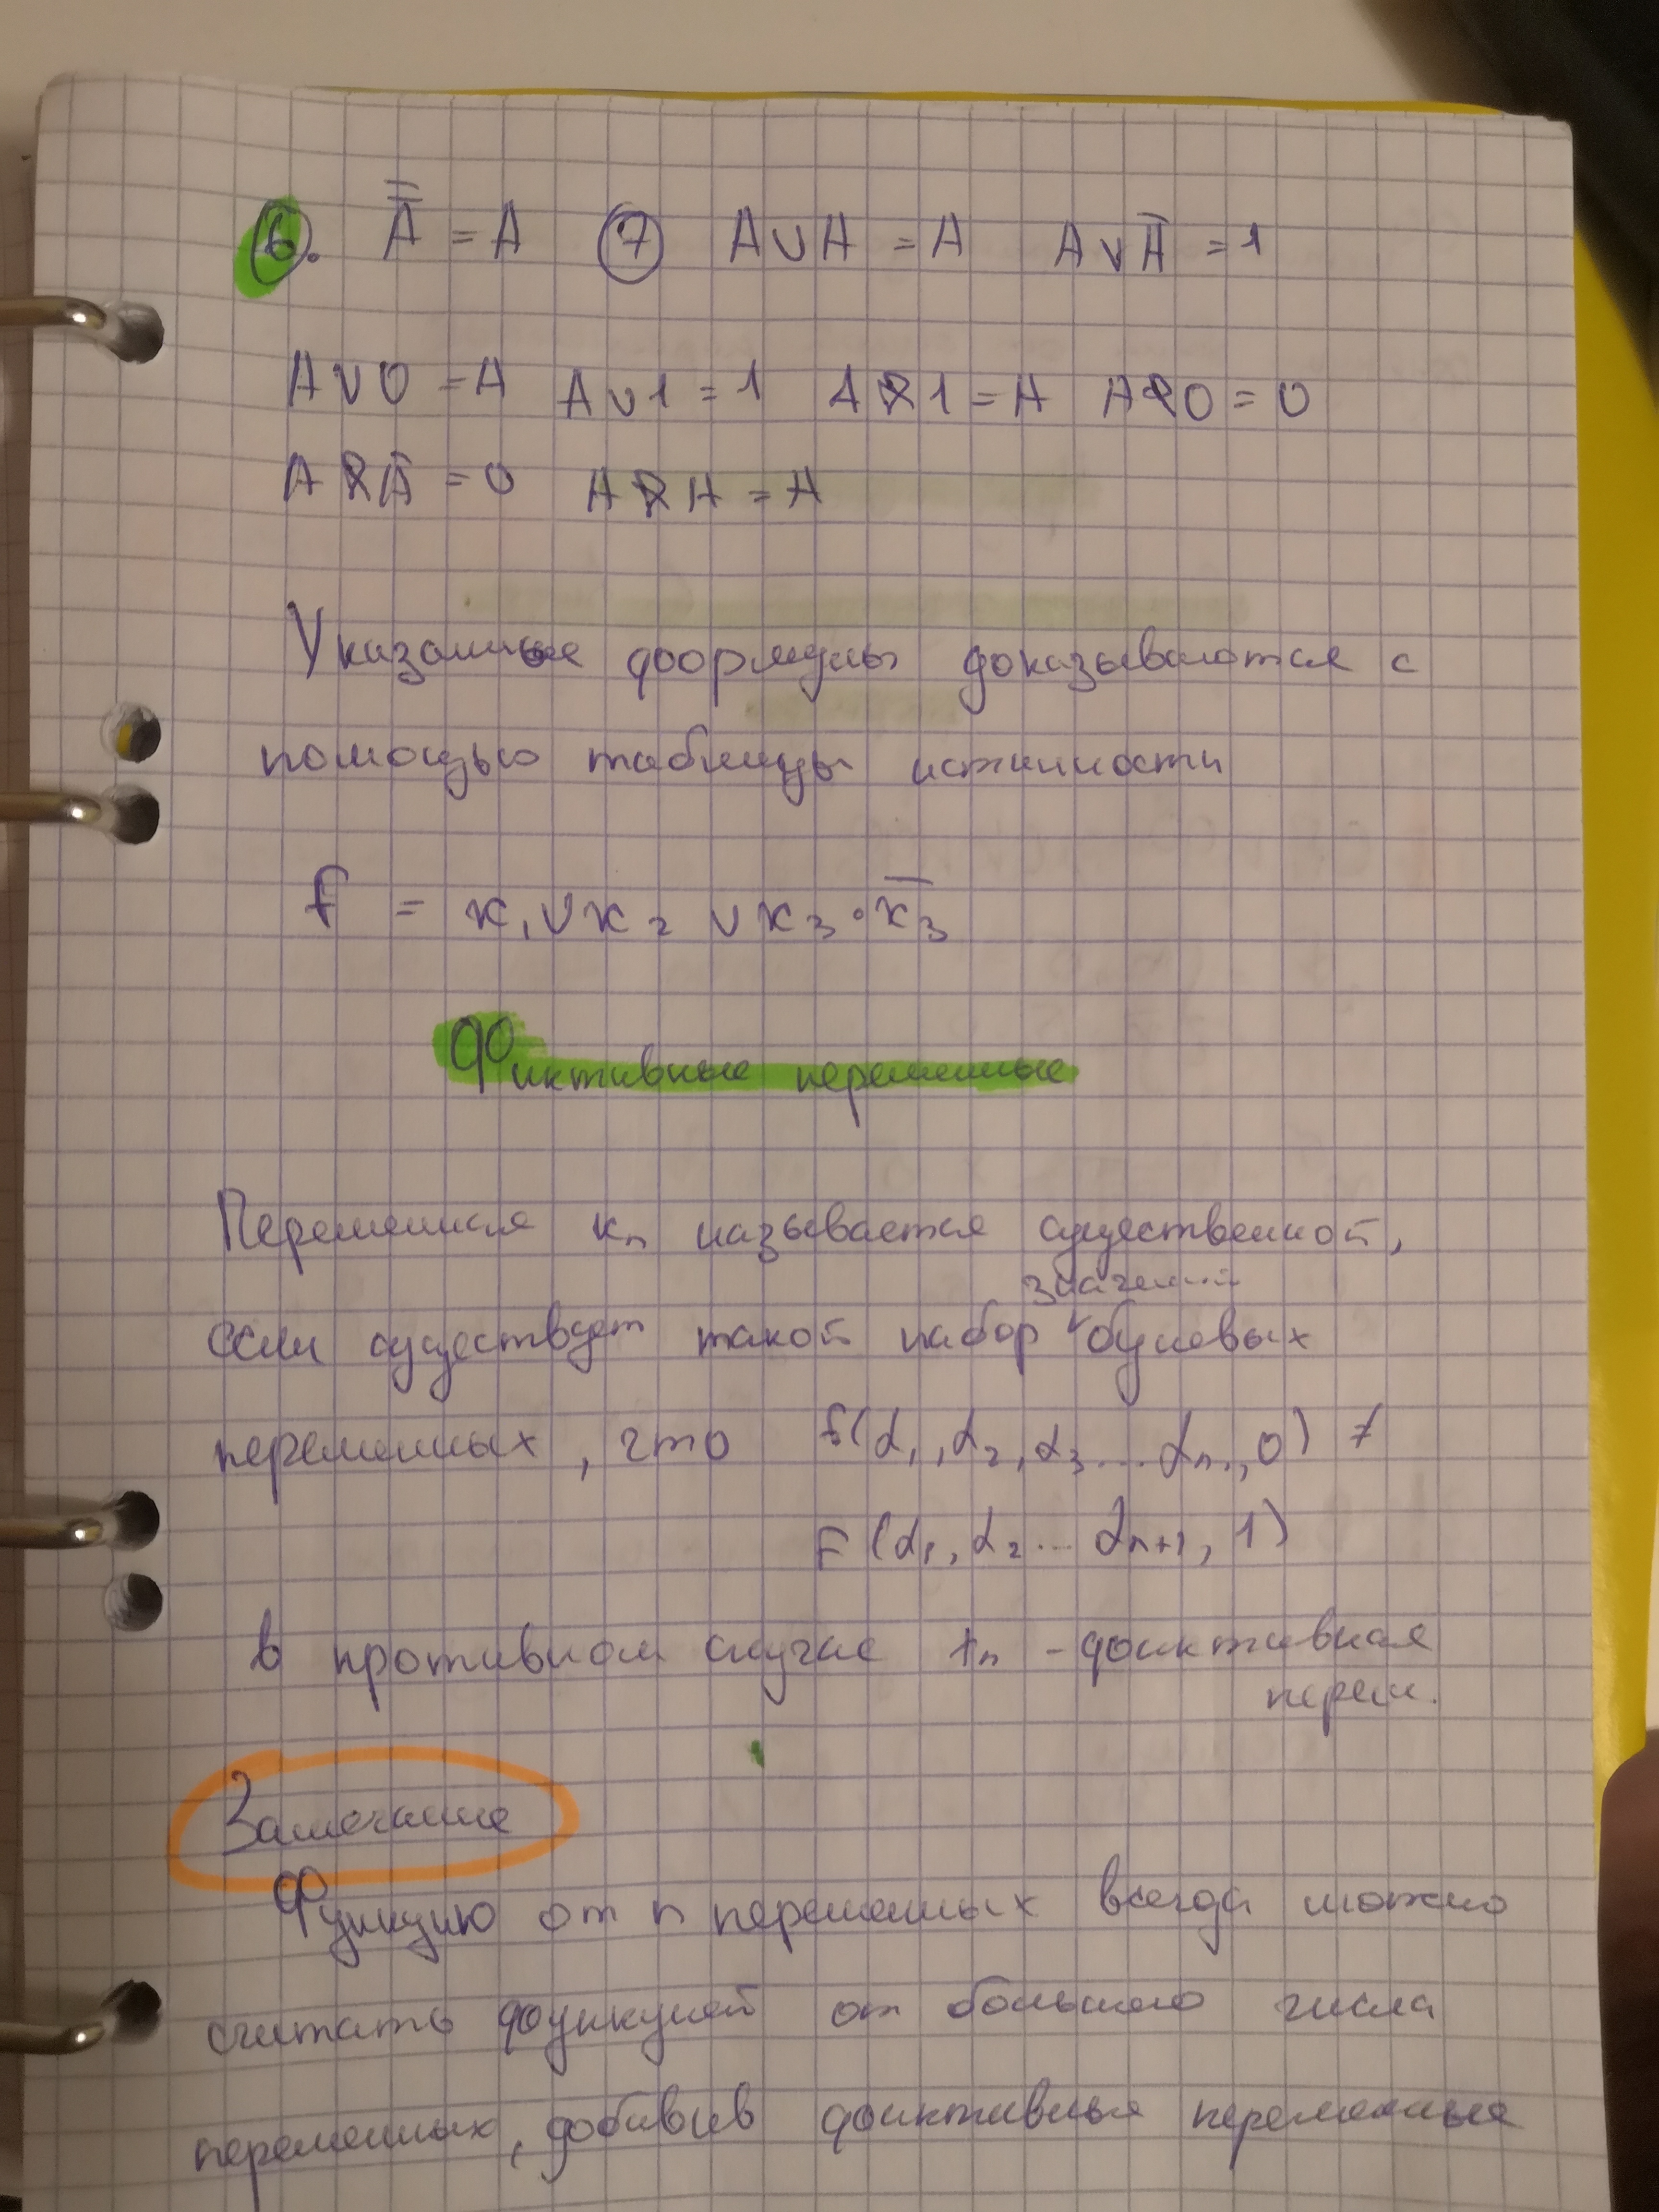 6. A̿ = A   7   A ∨ A = A   A ∨ Ā = 1
A ∨ 0 = A   A ∨ 1 = 1   A & 1 = A   A & 0 = 0
A & Ā = 0   A & A = A
Указанные формулы доказываются с
помощью таблицы истинности
f = x₁ ∨ x₂ ∨ x₃ · x̄₃
Фиктивные переменные
Переменная xₙ называется существенной,
значений
если существует такой набор ✓ булевых
переменных, что f(α₁, α₂, α₃ ... αₙ₋₁, 0) ≠
F(α₁, α₂ ... αₙ₊₁, 1)
в противном случае xₙ - фиктивная
перем.
Замечание
Функцию от n переменных всегда можно
считать функцией от большего числа
переменных, добавив фиктивные переменные